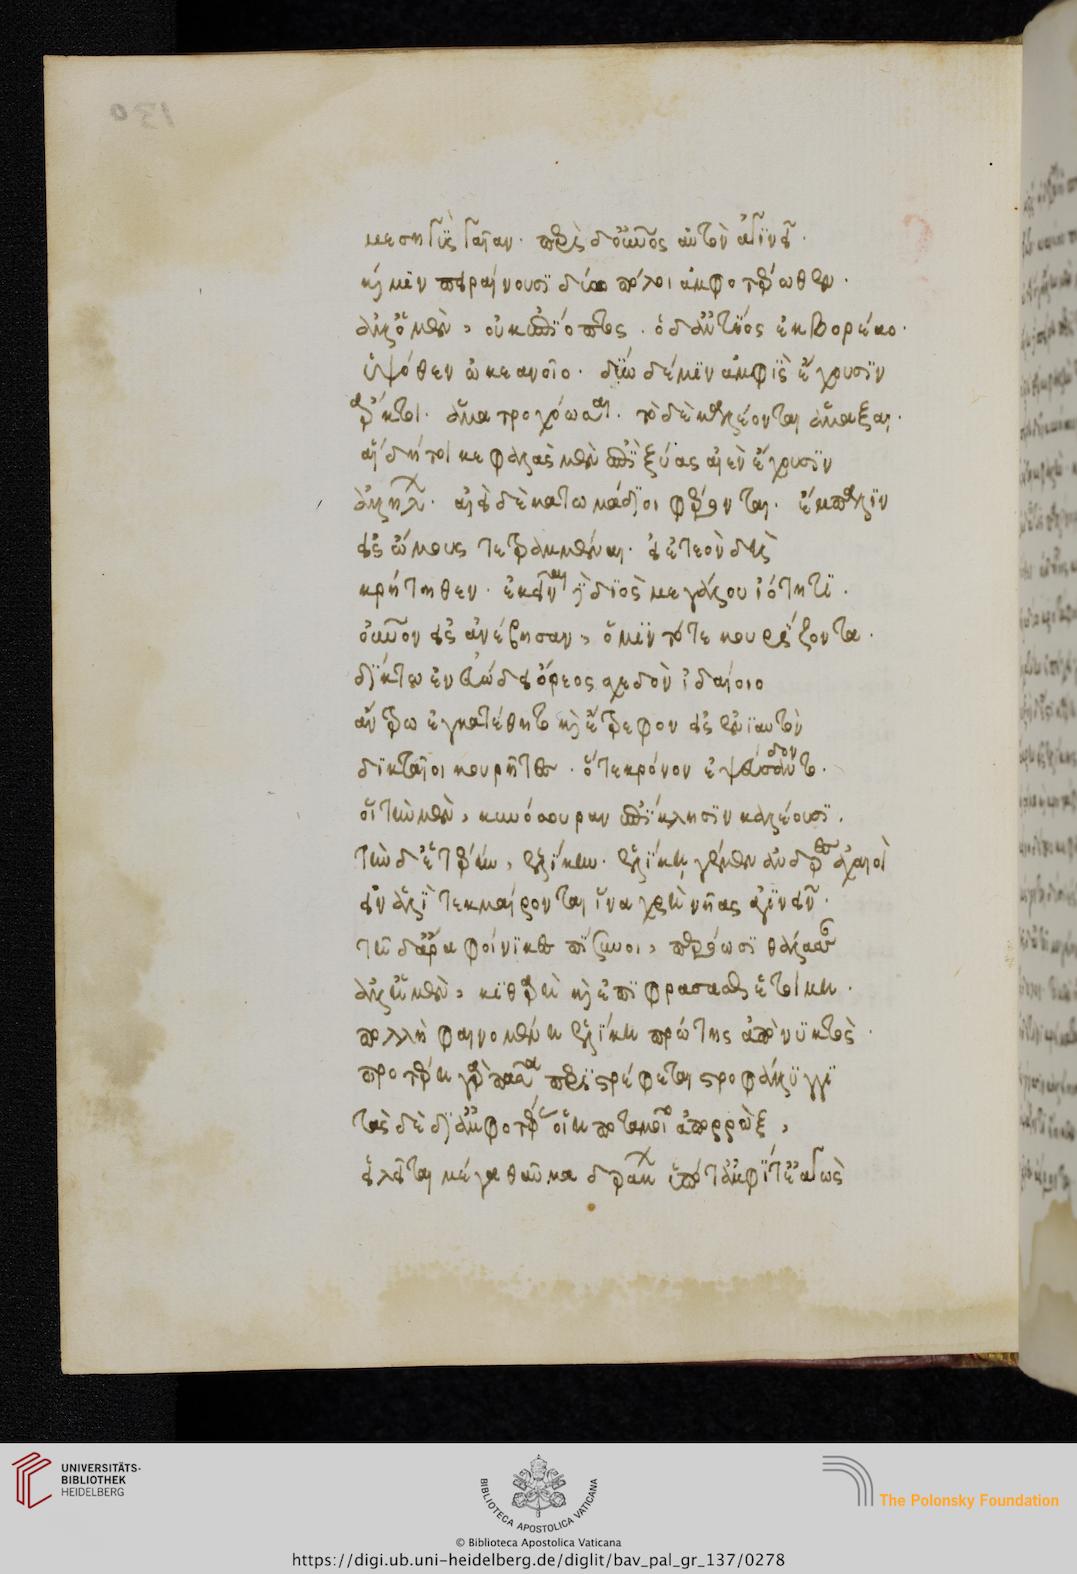 130
μεσσηγὺς γαῖαν· περὶ δ' οὐρανὸς αὐτὸν ἀγινεῖ·
καὶ μὲν πειραίνουσι δύω πόλοι ἀμφοτέρωθεν·
ἀλλ' ὁ μὲν, οὐκ ἐπίοπτος· ὁ δ' ἀντίος ἐκ βορέαο·
ὑψόθεν ὠκεανοῖο· δύω δέ μιν ἀμφὶς ἔχουσιν
ἄρκτοι· ἅμα τροχόωσαι· τὸ δὲ καλέονται ἅμαξαι·
αἳ δή τοι κεφαλὰς μὲν ἐπ' ἰξύας αἰὲν ἔχουσιν
ἀλλήλων· αἰεὶ δὲ κατωμάδιοι φορέονται· ἔμπαλιν
εἰς ὤμους τετραμμέναι· εἰ ἐτεὸν δὴ
κρήτηθεν· ἐκεῖναί γε διὸς μεγάλου ἰότητι·
οὐρανὸν εἰς ἀνέβησαν, ὅ μιν τότε κουρίζοντα·
δίκτῳ ἐν εὐώδει ὄρεος σχεδὸν ἰδαίοιο
ἄντρῳ ἐγκατέθεντο καὶ ἔτρεφον εἰς ἐνιαυτὸν
δικταῖοι κούρητες· ὅτε κρόνον ἐψεύδοντο·
καὶ τὴν μὲν, κυνόσουραν ἐπίκλησιν καλέουσι·
τὴν δ' ἑτέρην, ἑλίκην· ἑλίκῃ γε μὲν ἄνδρες ἀχαιοὶ
εἰν ἁλὶ τεκμαίρονται ἵνα χρὴ νῆας ἀγινεῖν·
τῇ δ' ἄρα φοίνικες πίσυνοι, περόωσι θάλασσαν
ἀλλ' ἡ μὲν, καθαρὴ καὶ ἐπιφράσσασθαι ἑτοίμη·
πολλὴ φαινομένη ἑλίκη πρώτης ἀπὸ νυκτὸς·
προτέρη γὰρ πᾶσα περιστρέφεται στροφάλιγγι
τὰς δὲ δι' ἀμφοτέρας οἵη ποταμοῖο ἀπορρὼξ,
εἱλεῖται μέγα θαῦμα δράκων
UNIVERSITÄTS-
BIBLIOTHEK
HEIDELBERG
BIBLIOTECA APOSTOLICA VATICANA
The Polonsky Foundation
© Biblioteca Apostolica Vaticana
https://digi.ub.uni-heidelberg.de/diglit/bav_pal_gr_137/0278